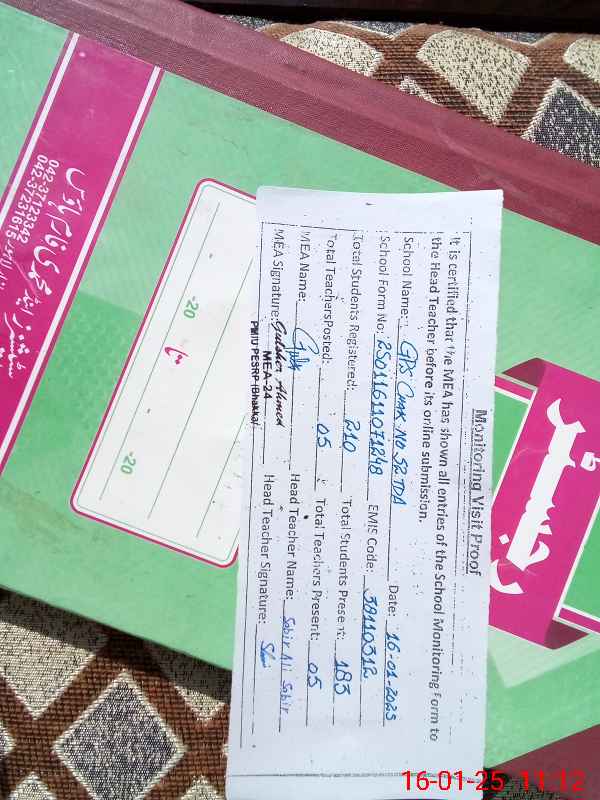 Monitoring Visit Proof
It is certified that the MEA has shown all entries of the School Monitoring Form to
the Head Teacher before its online submission.
School Name: GPS Chak No 52 TDA Date: 16-01-2025
School Form No: 25011611071248 EMIS Code: 38110312
Total Students Registered: 210 Total Students Present: 183
Total Teachers Posted: 05 Total Teachers Present: 05
MEA Name: Head Teacher Name: Sabir Ali Sabir
MEA Signature: Gulsher Ahmed Head Teacher Signature:
MEA-24
PMIU PESRP (Bhakkar)
رجسٹر
-20
-20
042-37123342
042-37231615
16-01-25 11:12